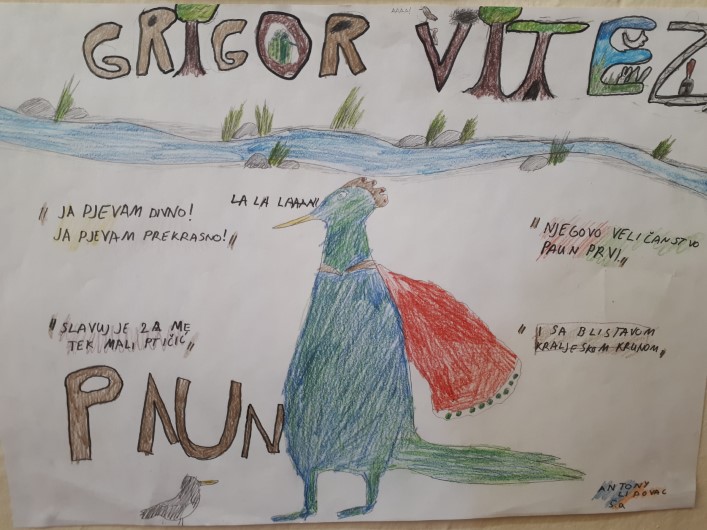 GRIGOR VITEZ
LA LA LAAAN!
"JA PJEVAM DIVNO!
JA PJEVAM PREKRASNO!"
"NJEGOVO VELIČANSTVO
PAUN PRVI"
"SLAVUJ JE ZA ME
TEK MALI PTIČIĆ"
"I SA BLISTAVOM
KRALJESKOM KRUNOM"
PAUN
ANTONY